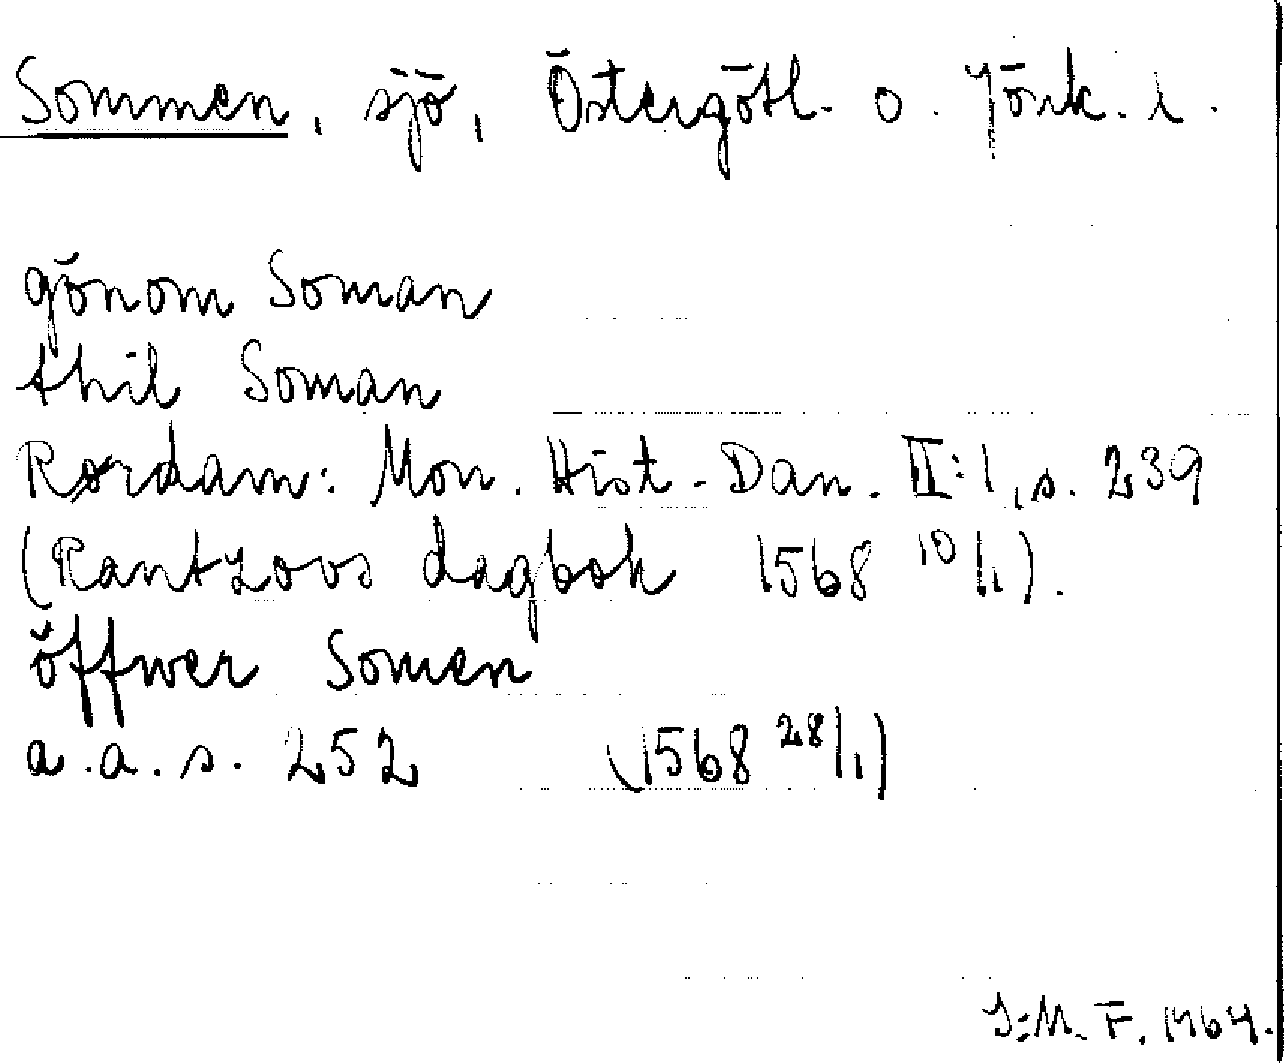 Sommen, sjö, Östergötl. o. Jönk. l.
gönom Soman
thil Soman
Rørdam: Mon. Hist. Dan. II:1, s. 239
(Rantzovs dagbok 1568 10/1).
öffwer Somen
a.a. s. 252 (1568 28/1)
I:M. F. 1964.